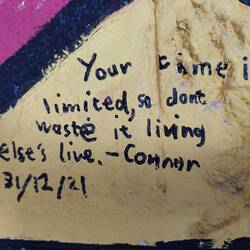 Your time i
limited, so dont
waste it living
else's live. - Connor
31/12/21